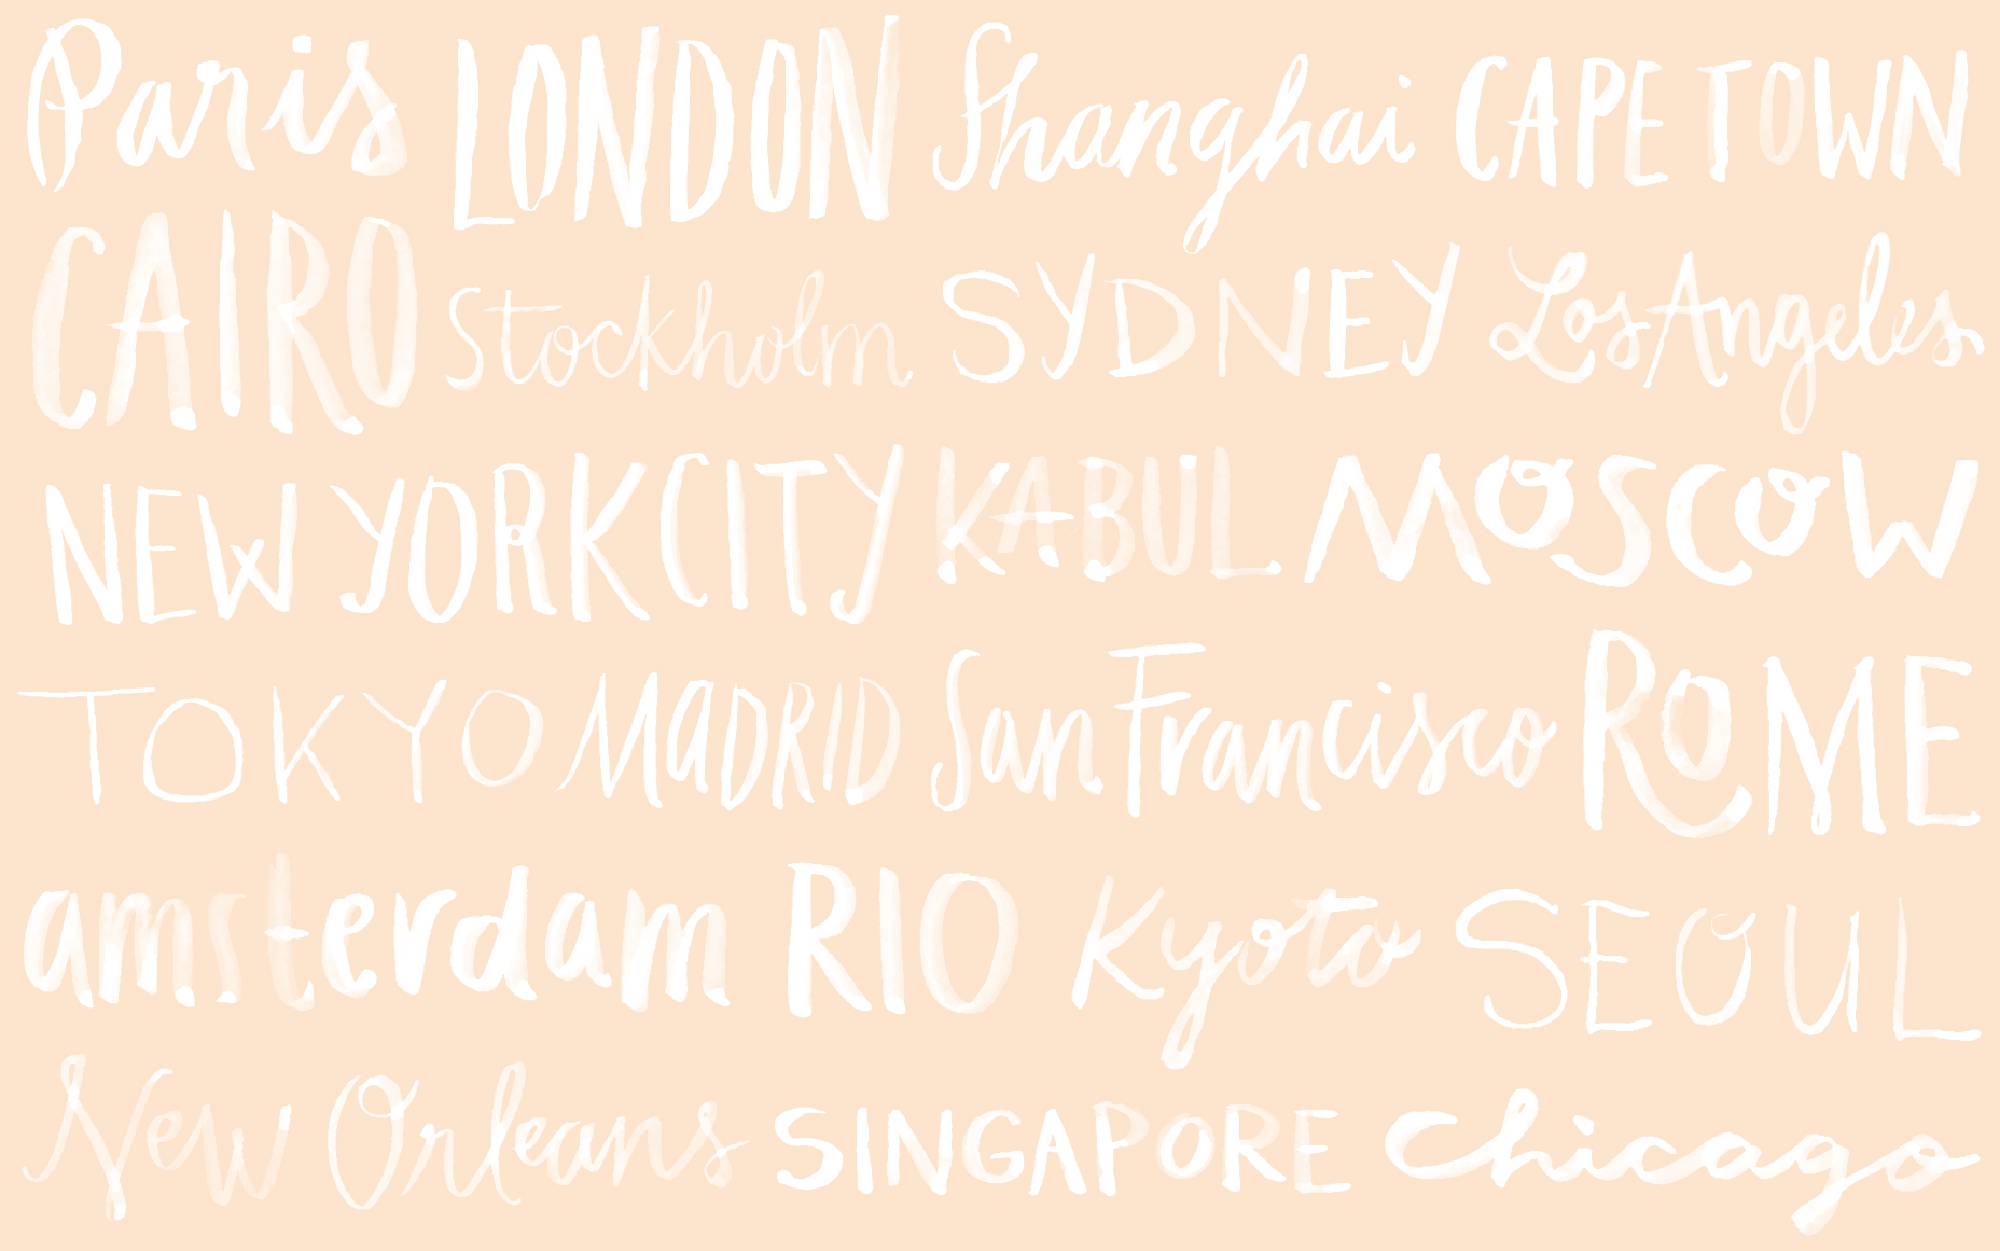 Paris LONDON Shanghai CAPE TOWN
CAIRO Stockholm SYDNEY Los Angeles
NEW YORK CITY KABUL MOSCOW
TOKYO MADRID San Francisco ROME
amsterdam RIO Kyoto SEOUL
New Orleans SINGAPORE Chicago